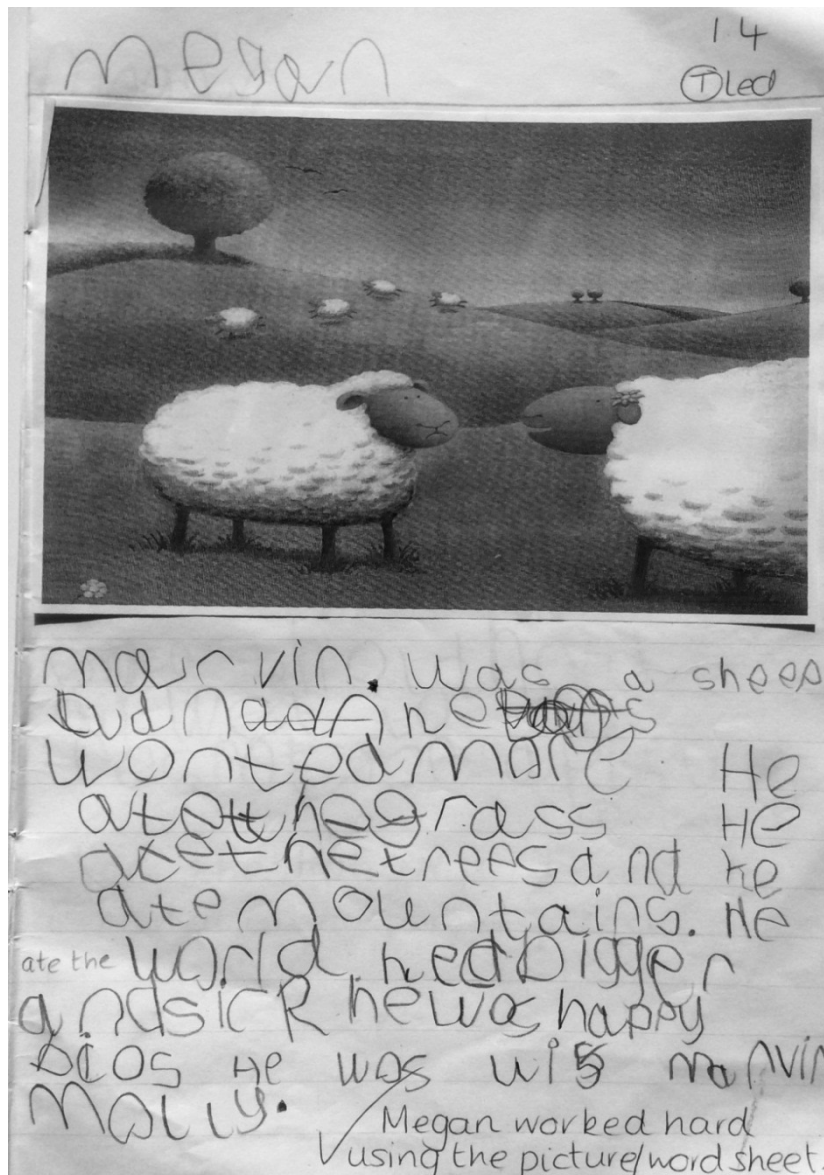 megan
1.4
Ⓣ led
marvin. was a sheep
he
wonted more He
ate the grass He
ate the trees and he
ate mountains. He
ate the world. bigger
and sick he was happy
bicos He was wis marvin
Molly.
Megan worked hard
using the picture/word sheet.